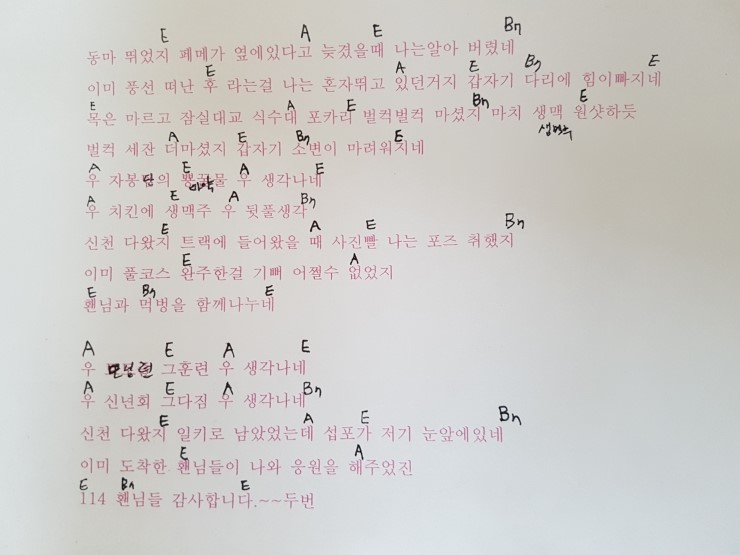 E A E Bn
동마 뛰었지 페메가 옆에있다고 늦겼을때 나는알아 버렸네
E A E Bn E
이미 풍선 떠난 후 라는걸 나는 혼자뛰고 있던거지 갑자기 다리에 힘이빠지네
E A E Bn E
목은 마르고 잠실대교 식수대 포카리 벌컥벌컥 마셨지 마치 생맥 원샷하듯
생맥주
A E Bn E
벌컥 세잔 더마셨지 갑자기 소변이 마려워지네
A E A E
우 자봉담의 꿀물 우 생각나네
마약
A E A Bn
우 치킨에 생맥주 우 뒷풀생각
E A E Bn
신천 다왔지 트랙에 들어왔을 때 사진빨 나는 포즈 취했지
E A
이미 풀코스 완주한걸 기뻐 어쩔수 없었지
E Bn E
홴님과 먹벙을 함께나누네
A E A E
우 그훈련 우 생각나네
A E A Bn
우 신년회 그다짐 우 생각나네
E A E Bn
신천 다왔지 일키로 남았었는데 섭포가 저기 눈앞에있네
E A
이미 도착한 홴님들이 나와 응원을 해주었진
E Bn E
114 홴님들 감사합니다.~~두번